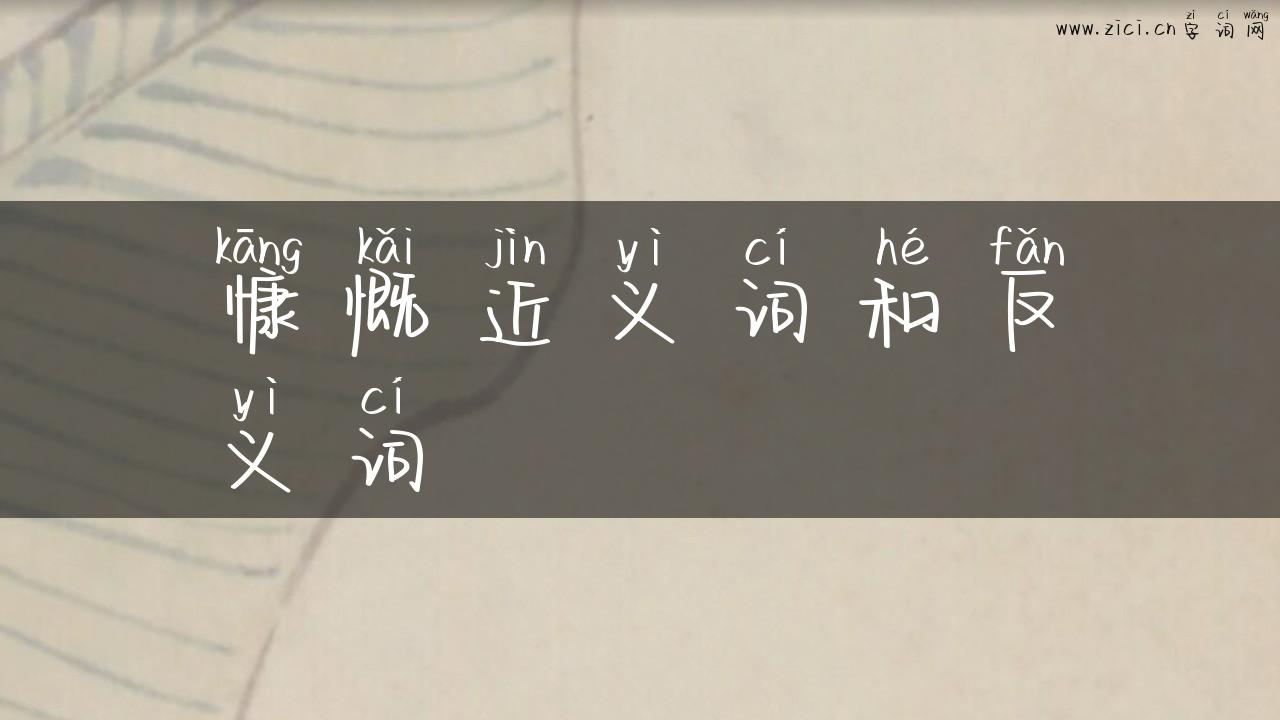 www.zici.cn zì cí wǎng
字词网
kāng kǎi jìn yì cí hé fǎn
慷慨近义词和反
yì cí
义词